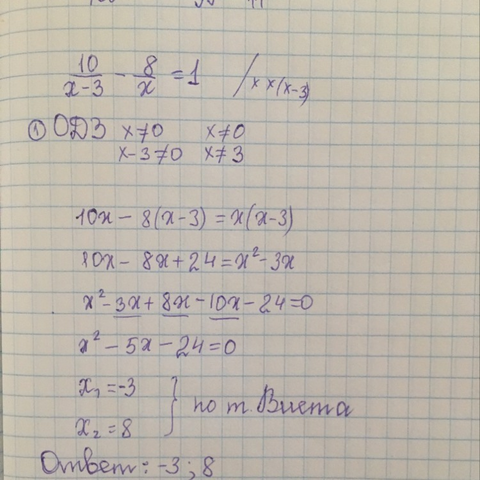 10/(x-3) - 8/x = 1 / × x(x-3)
① ОДЗ x≠0 x≠0
x-3≠0 x≠3
10x - 8(x-3) = x(x-3)
10x - 8x + 24 = x² - 3x
x² - 3x + 8x - 10x - 24 = 0
x² - 5x - 24 = 0
x₁ = -3
x₂ = 8 } по т. Виета
Ответ: -3; 8